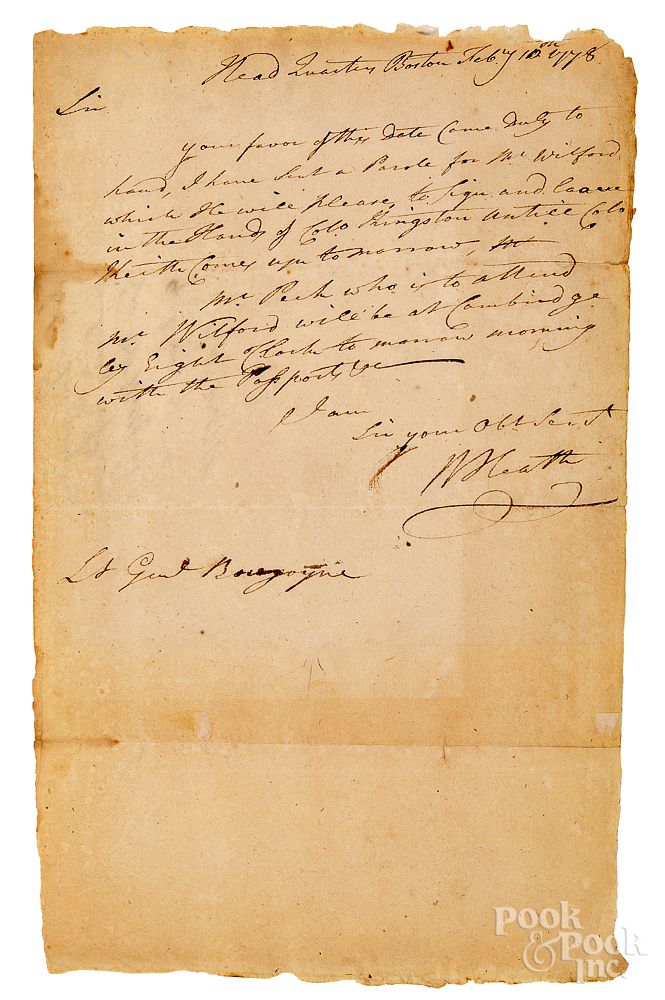 Head Quarters Boston Feby 10th 1778
Sir
your favor of this Date Came Duly to
hand, I have Sent a Parole for Mr Wilford
which He will please to Sign and leave
in the Hands of Colo Kingston untill Colo
Keith Comes up to morrow,
Mr Peck who is to attend
Mr Wilford will be at Cambridge
by Eight oClock to morrow morning
with the Passports &c
I am
Sir your Obt Servt
W Heath
Lt Genl Burgoyne
POOK
& POOK
Inc